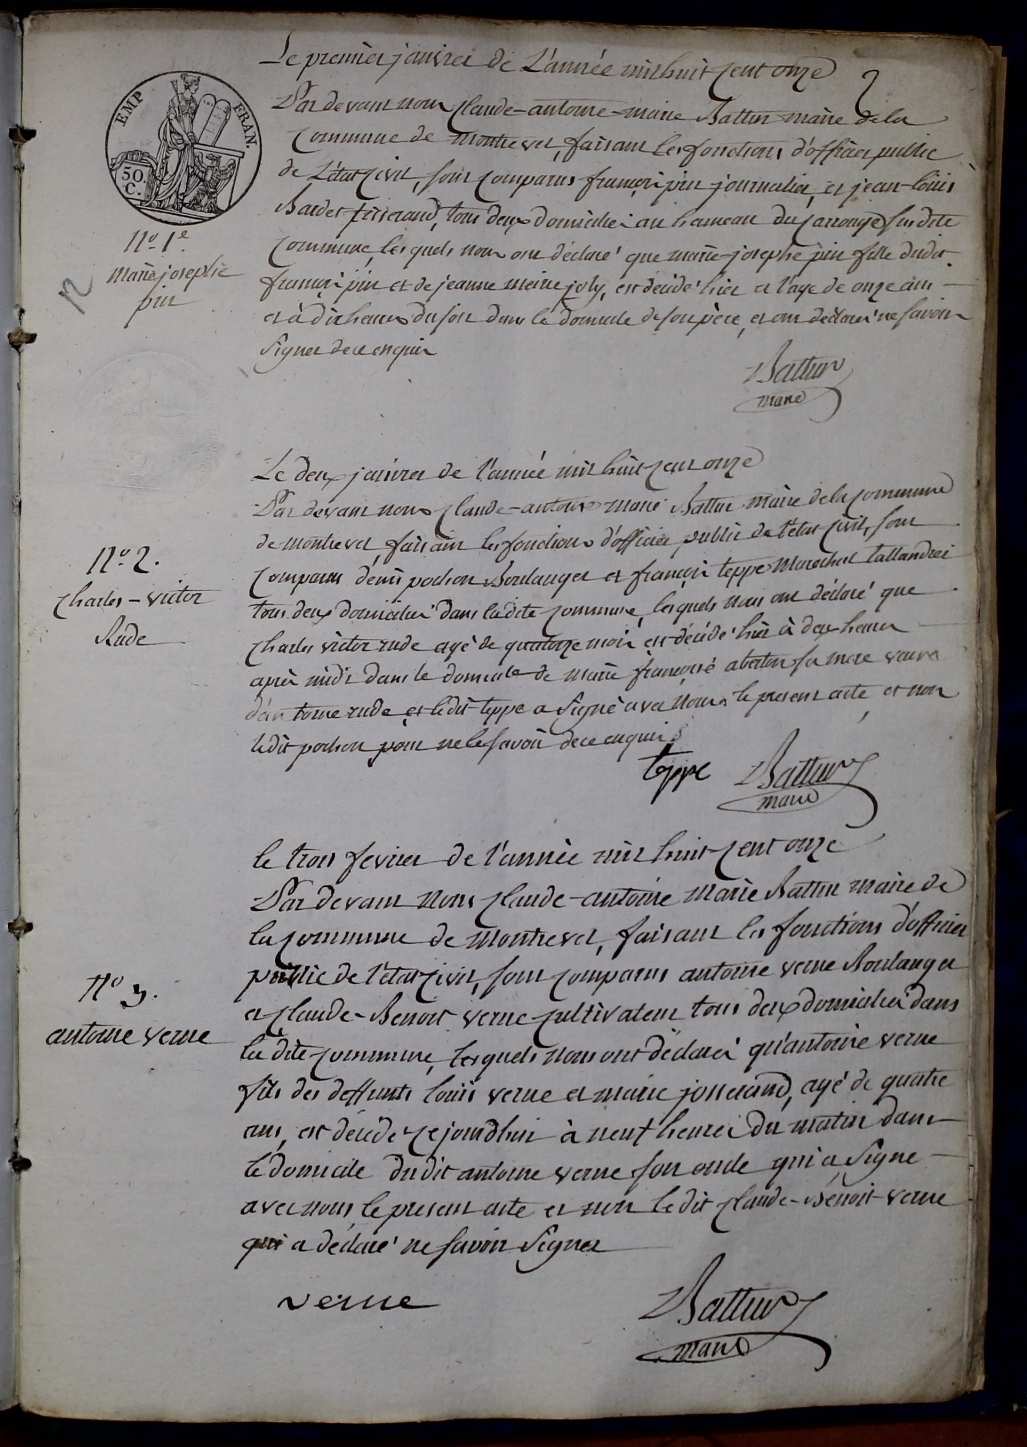 EMP FRAN.
50. C.
2
Le premier janvier de L'année mil huit cent onze
Par devant nous Claude-antoine-marie Battur maire de la
Commune de Montrevel, faisant les fonctions d'officier public
de L'état Civil, sont comparus françois pin journalier, et jean-Louis
Bardet tisserand, tous deux domiciliés au hameau du sarronge susdite
Commune, lesquels nous ont déclaré que marie-josephe pin fille dudit
françois pin et de jeanne marie joly, est décédé hier a l'age de onze ans
et à dix heures du soir dans le domicile de son père, et ont déclaré ne savoir
signer de ce enquis
Battur
maire
No. 1e.
Marie josephe
pin
12
Le deux janvier de l'année mil huit cent onze
Par devant nous Claude-antoine marie Battur maire de la commune
de montrevel faisant les fonctions d'officier public de l'état civil, sont
Comparus denis pochon Boulanger et françois teppe Marechal taillandier
tous deux domiciliés dans la dite commune, lesquels nous ont déclaré que
Charles victor rude agé de quatorze mois est décédé hier à deux heures
après midi dans le domicile de marie françoise aberton sa mere veuve
d'antoine rude, et ledit teppe a signé avec nous le present acte, et non
ledit pochon pour ne le savoir de ce enquis
teppe Battur
maire
No. 2.
Charles-victor
Rude
le trois fevrier de l'année mil huit cent onze
Par devant Nous Claude-antoine Marie Battur maire de
la commune de montrevel, faisant les fonctions d'officier
public de l'état civil, sont comparus antoine verne Boulanger
et Claude-Benoit verne cultivateur tous deux domiciliés dans
la dite commune, lesquels nous ont déclaré qu'antoine verne
fils des deffunts louis verne et marie josserand, agé de quatre
ans, est décédé cejourdhui à neuf heures du matin dans
le domicile dudit antoine verne son oncle qui a signé
avec nous le present acte et non le dit Claude-Benoit verne
qui a déclaré ne savoir signer
verne Battur
maire
No 3.
antoine verne